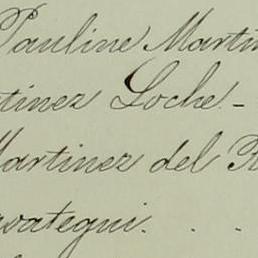 Pauline Martin
tinez Loche -
Martinez del R
vategui. . .